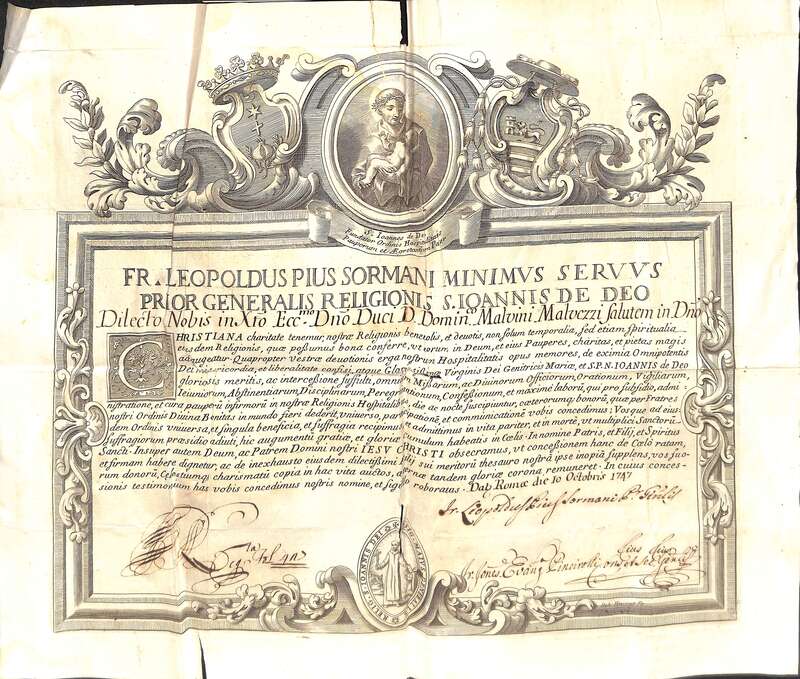 S. Ioannes de Deo
Fundator Ordinis Hospitalis
Pauperum et Ægrotantium Pater
FR. LEOPOLDUS PIUS SORMANI MINIMVS SERVVS
PRIOR GENERALIS RELIGIONIS S. IOANNIS DE DEO
Dilecto Nobis in Xto Eccmo Dno Duci D. Dominco Malvini Malvezzi salutem in Dno
CHRISTIANA charitate tenemur, nostræ Religionis benevolis, et devotis, non solum temporalia, sed etiam spiritualia
eiusdem Religionis, quæ possumus bona conferre, vt eorum in Deum, et eius Pauperes, charitas, et pietas magis
adaugeatur. Quapropter vestræ devotionis erga nostrum Hospitalitatis opus memores, de eximia Omnipotentis
Dei misericordia, et liberalitate confisi, atque Gloriosissimæ Virginis Dei Genitricis Mariæ, et S.P.N. IOANNIS de Deo
gloriosis meritis, ac intercessione suffulti, omnium Missarum, ac Divinorum Officiorum, Orationum, Vigiliarum,
Ieiuniorum, Abstinentiarum, Disciplinarum, Peregrinationum, Confessionum, et maximè laborū, qui pro subsidio, admi:
nistratione, et cura pauperū infirmorū in nostræ Religionis Hospitalibus, die ac nocte suscipiuntur, cæterorumq; bonorū, quæ per Fratres
nostri Ordinis Divina Bonitas in mundo fieri dederit, vniverso, participationē, et communicationē vobis concedimus; Vosque ad eius:
dem Ordinis vniversa, et singula beneficia, et suffragia recipimus, et admittimus in vita pariter, et in morte, vt multiplici Sanctorū
suffragiorum præsidio adiuti, hic augumentū gratiæ, et gloriæ cumulum habeatis in Cœlis. In nomine Patris, et Filij, et Spiritus
Sancti. Insuper autem Deum, ac Patrem Domini nostri IESV CHRISTI obsecramus, vt concessionem hanc de Cœlo ratam,
et firmam habere dignetur, ac de inexhausto eiusdem dilectissimi Filij sui meritorū thesauro nostrā ipse inopiā supplens, vos suo:
rum donorū, Cælestiumq; charismatū copia in hac vita auctos, æternæ tandem gloriæ corona remuneret. In cuius conces:
sionis testimonium has vobis concedimus nostris nomine, et sigillo roboratas. Dat. Romæ die 10 Octobris 1747
Fr. Leopoldus Pius Sormani Pr. Gñlis
RELIG. IOANNIS DEI